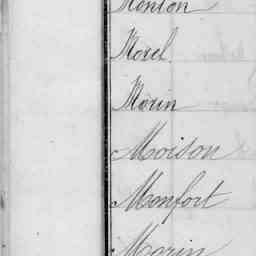 Monton
Morel
Morin
Moison
Monfort
Morin